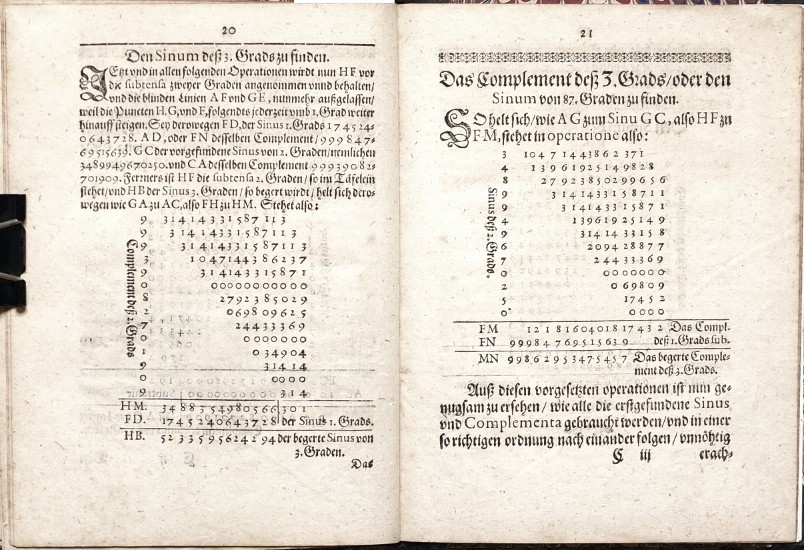 20
Den Sinum deß 3. Grads zu finden.
JEtzt vnd in allen folgenden Operationen wirdt nun HF vor
die subtensa zweyer Graden angenommen vnnd behalten/
vnd die blinden Linien AF vnd GE, nunmehr außgelassen/
weil die Puncten H, G, vnd F, folgendts jederzeit vmb 1. Grad weiter
hinauff steigen. Sey derowegen FD, der Sinus 1. Grads 1 7 4 5 2 4-
0 6 4 3 7 2 8. AD, oder FN desselben Complement/ 9 9 9 8 4 7-
6 9 5 1 5 6 3 9. GC der vorgefundene Sinus von 2. Graden/nemlichen
3489949670250. vnd CA desselben Complement 99939082-
701909. Ferners ist HF die subtensa 2. Graden/ so im Täfelein
stehet/vnd HB der Sinus 3. Graden/ so begert wirdt/ helt sich dero-
wegen wie GA zu AC, also FH zu HM. Stehet also:
Complement deß 2. Grads
9 3 1 4 1 4 3 3 1 5 8 7 1 1 3
9 3 1 4 1 4 3 3 1 5 8 7 1 1 3
9 3 1 4 1 4 3 3 1 5 8 7 1 1 3
3 1 0 4 7 1 4 4 3 8 6 2 3 7
9 3 1 4 1 4 3 3 1 5 8 7 1
0 0 0 0 0 0 0 0 0 0 0 0
8 2 7 9 2 3 8 5 0 2 9
2 0 6 9 8 0 9 6 2 5
7 2 4 4 3 3 3 6 9
0 0 0 0 0 0 0 0
1 0 3 4 9 0 4
9 3 1 4 1 4
0 0 0 0 0
9 3 1 4
HM. 3 4 8 8 3 5 4 9 8 0 5 6 6 3 0 1
FD. 1 7 4 5 2 4 0 6 4 3 7 2 8 der Sinus 1. Grads.
HB. 5 2 3 3 5 9 5 6 2 4 2 9 4 der begerte Sinus von
3. Graden.
Das
21
Das Complement deß 3. Grads/oder den
Sinum von 87. Graden zu finden.
SO helt sich/wie AG zum Sinu GC, also HF zu
FM, stehet in operatione also:
Sinus deß 2. Grads.
3 1 0 4 7 1 4 4 3 8 6 2 3 7 1
4 1 3 9 6 1 9 2 5 1 4 9 8 2 8
8 2 7 9 2 3 8 5 0 2 9 9 6 5 6
9 3 1 4 1 4 3 3 1 5 8 7 1
9 3 1 4 1 4 3 3 1 5 8 7 1
4 1 3 9 6 1 9 2 5 1 4 9
9 3 1 4 1 4 3 3 1 5 8
6 2 0 9 4 2 8 8 7 7
7 2 4 4 3 3 3 6 9
0 0 0 0 0 0 0 0
2 0 6 9 8 0 9
5 1 7 4 5 2
0 0 0 0 0
FM 1 2 1 8 1 6 0 4 0 1 8 1 7 4 3 2 Das Compl.
FN 9 9 9 8 4 7 6 9 5 1 5 6 3 9 deß 1. Grads sub.
MN 9 9 8 6 2 9 5 3 4 7 5 4 5 7 Das begerte Comple-
ment deß 3. Grads.
Auß diesen vorgesetzten operationen ist nun ge-
nugsam zu ersehen/ wie alle die erstgefundene Sinus
vnd Complementa gebraucht werden/vnd in einer
so richtigen ordnung nach einander folgen/ vnnöhtig
C iij erach-